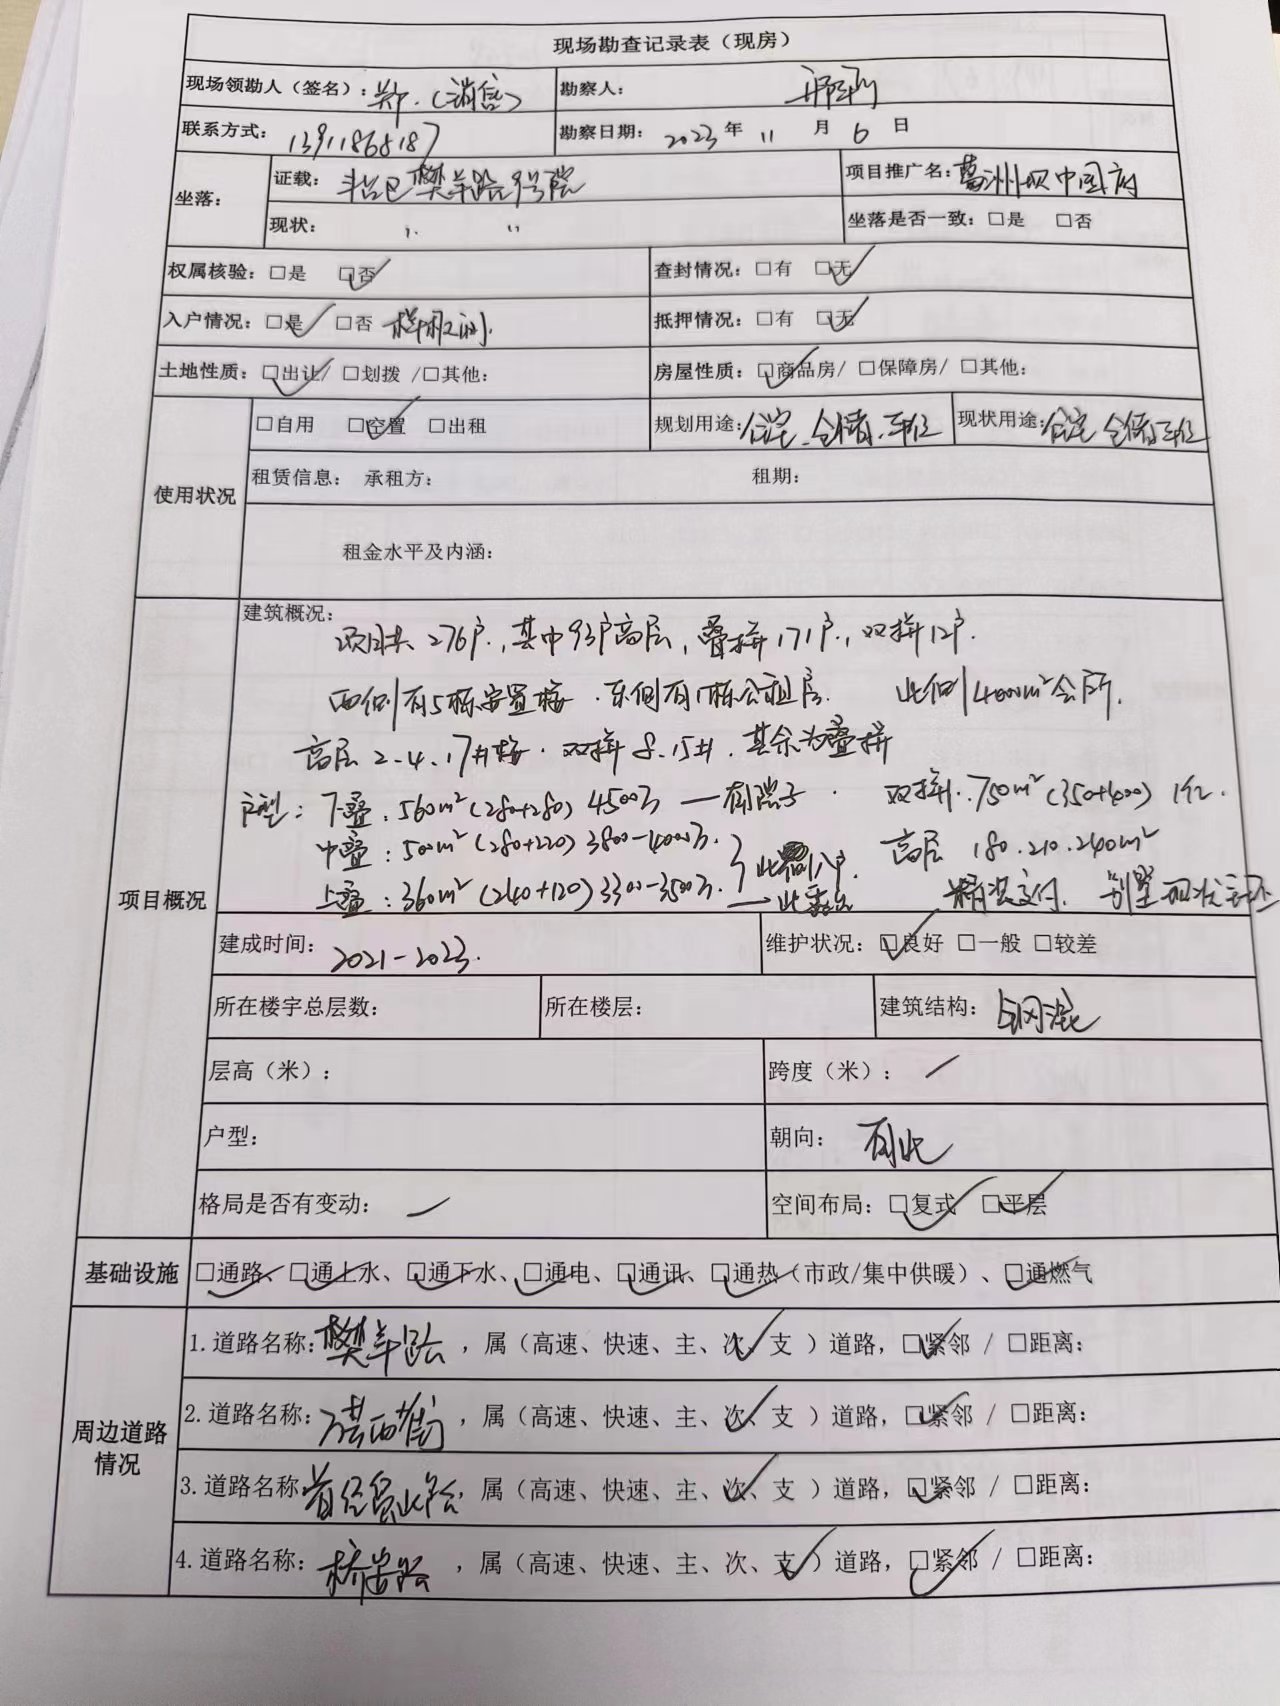 现场勘查记录表（现房）
现场领勘人（签名）：郑.（销售） 勘察人：
联系方式：13911868187 勘察日期：2023年11月6日
坐落： 证载：丰台区樊羊路9号院 项目推广名：葛洲坝中国府
现状： 〃 〃 坐落是否一致：□是 □否
权属核验：□是 ☑否 查封情况：□有 ☑无
入户情况：☑是 □否 样板间. 抵押情况：□有 ☑无
土地性质：☑出让/ □划拨 /□其他： 房屋性质：☑商品房/ □保障房/ □其他：
使用状况 □自用 ☑空置 □出租 规划用途：住宅、仓储、车位 现状用途：住宅 仓储 车位
租赁信息： 承租方： 租期：
租金水平及内涵：
项目概况 建筑概况：
项目共276户，其中93户高层，叠拼171户，双拼12户.
西侧有5栋安置楼．东侧有1栋公租房. 北侧4000m²会所.
高层2、4、17#楼．双拼8、15#．其余为叠拼
户型：下叠：560m²（280+280）4500万—有院子． 双拼：750m²（350+400）1亿.
中叠：500m²（280+220）3800-4000万. 高层 180.210.240m²
上叠：360m²（240+120）3300-3500万. 精装交付. 别墅现状毛坯
建成时间：2021-2023. 维护状况：☑良好 □一般 □较差
所在楼宇总层数： 所在楼层： 建筑结构：钢混
层高（米）： 跨度（米）：／
户型： 朝向：南北
格局是否有变动：／ 空间布局：☑复式 ☑平层
基础设施 ☑通路、☑通上水、☑通下水、☑通电、☑通讯、☑通热（市政/集中供暖）、☑通燃气
周边道路情况 1.道路名称：樊羊路，属（高速、快速、主、次✓、支）道路，☑紧邻 / □距离：
2.道路名称：，属（高速、快速、主、次✓、支）道路，☑紧邻 / □距离：
3.道路名称：首经贸北路，属（高速、快速、主、次✓、支）道路，☑紧邻 / □距离：
4.道路名称：，属（高速、快速、主、次、支✓）道路，☑紧邻 / □距离：